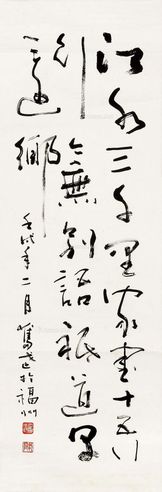 江水三千里家書十五行
行々無別語祗道早
還鄉
壬戌年二月奮武於福州